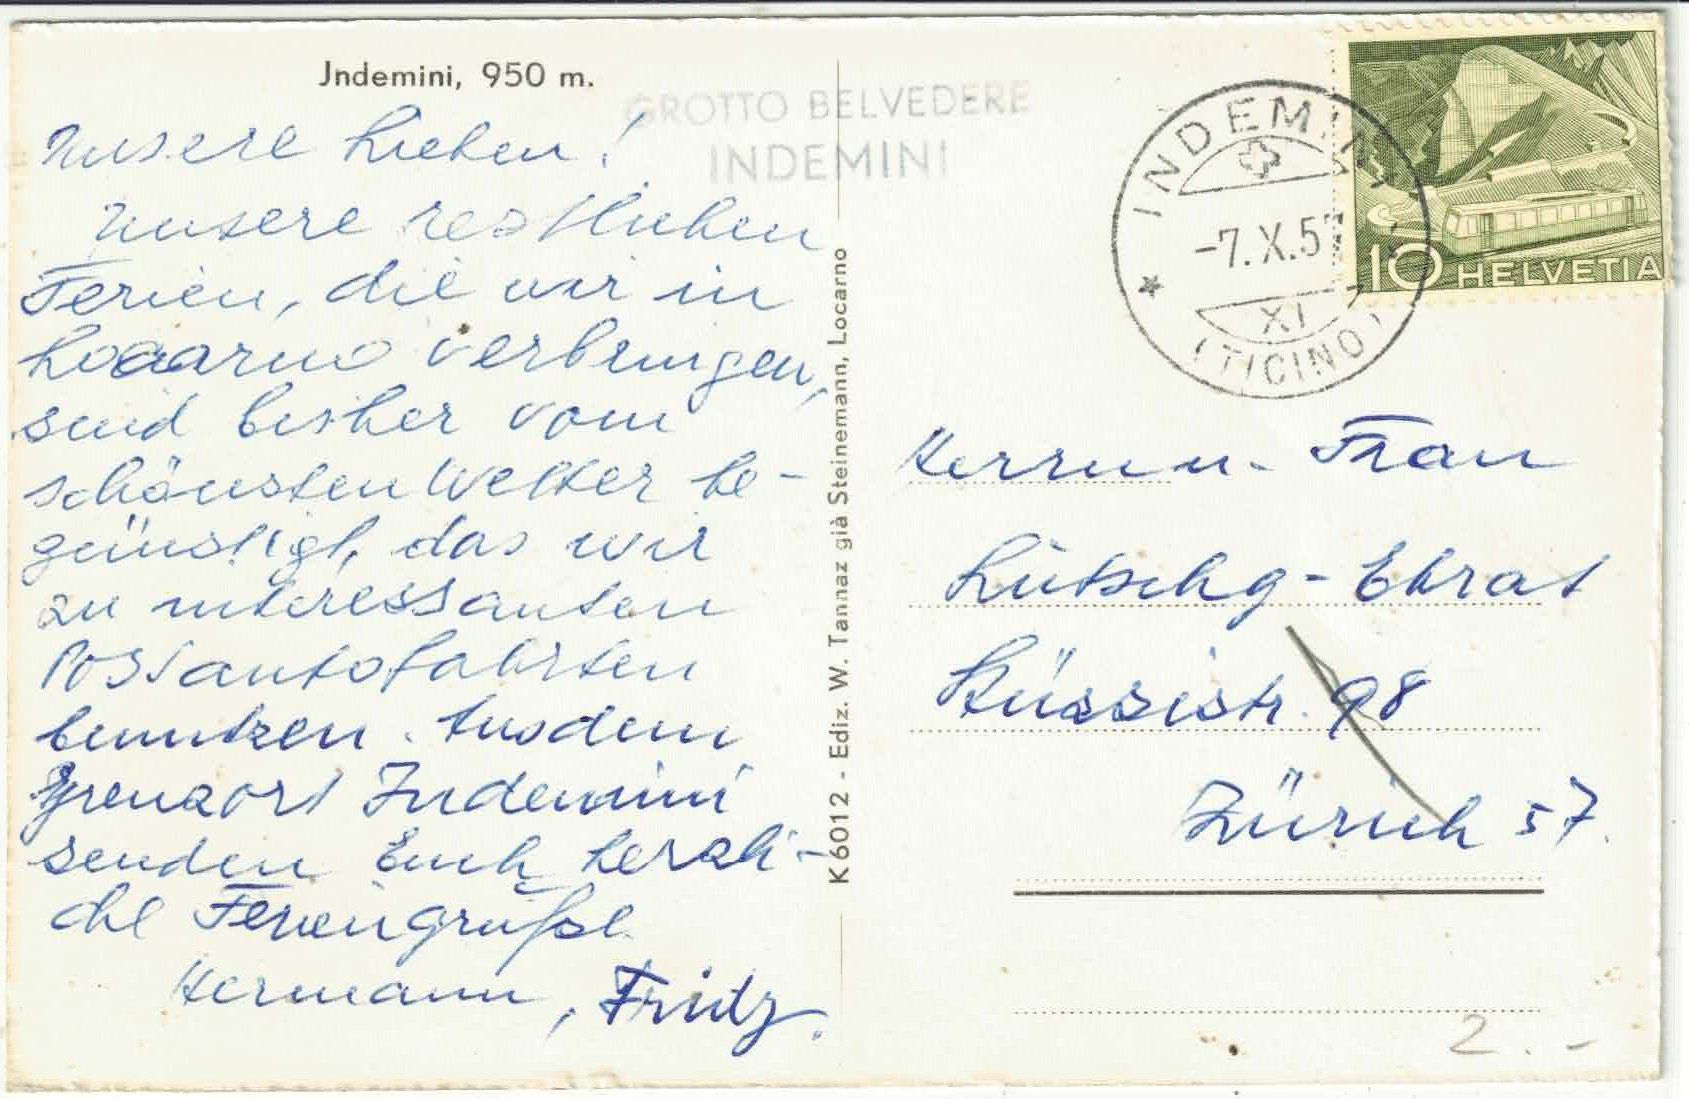 Jndemini, 950 m.
GROTTO BELVEDERE
INDEMINI
Unsere Lieben!
Unsere restlichen
Ferien, die wir in
Locarno verbringen,
sind bisher vom
schönsten Wetter be-
günstigt, das wir
zu interessanten
Postautofahrten
benutzen. Aus dem
Grenzort Indemini
senden Euch herzli-
che Feriengrüße
Hermann, Fritz.
K 6012 - Ediz. W. Tannaz già Steinemann, Locarno
INDEMINI
-7. X. 5
XI
(TICINO)
10 HELVETIA
Herrn u. Frau
Lütschg-Ehrat
Stüssistr. 98
Zürich 57.
2.-